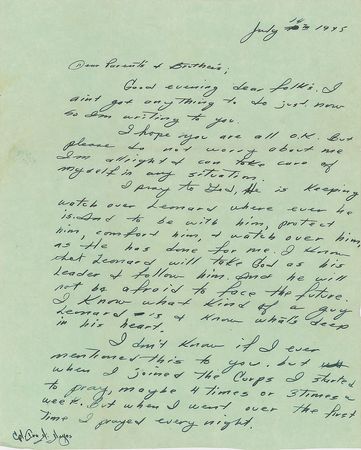 July 1945
Dear Parents & Brothers;
Good evening dear folks. I
aint got anything to do just now
so I'm writing to you.
I hope you are all O.K. But
please do not worry about me
I'm allright & can take care of
myself in any situation.
I pray to God, He is keeping
watch over Leonard where ever he
is. And to be with him, protect
him, comfort him, & watch over him,
as He has done for me. I know
that Leonard will take God as his
Leader & follow him. And he will
not be afraid to face the future.
I know what kind of a guy
Leonard is & know what's deep
in his heart.
I don't know if I ever
mentioned this to you, but
when I joined the Corps I started
to pray, maybe 4 times or 3 times a
week. But when I went over the first
time I prayed every night.
Cpl Ira H. Hayes